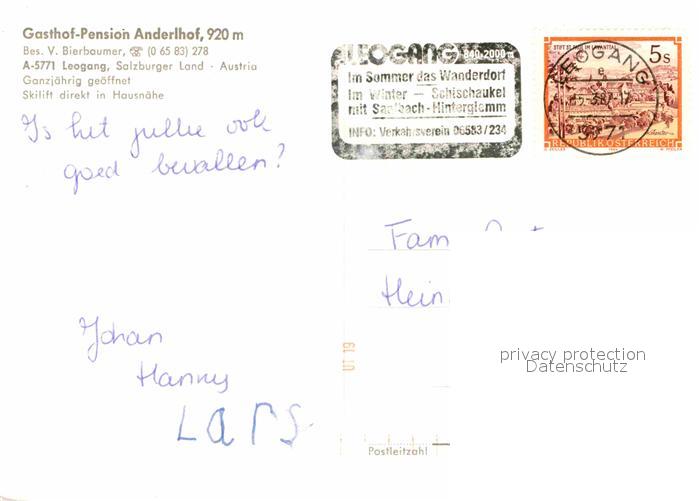 Gasthof-Pension Anderlhof, 920 m
Bes. V. Bierbaumer, ☎ (0 65 83) 278
A-5771 Leogang, Salzburger Land · Austria
Ganzjährig geöffnet
Skilift direkt in Hausnähe
LEOGANG 840-2000m
Im Sommer das Wanderdorf
Im Winter – Schischaukel
mit Saalbach-Hinterglemm
INFO: Verkehrsverein 06583/234
STIFT ST. PAUL IM LAVANTTAL
5s
REPUBLIK ÖSTERREICH
LEOGANG
Is het jullie ook
goed bevallen?
Fam
Hein
Johan
Hanny
LARS
UT 19
privacy protection
Datenschutz
Postleitzahl